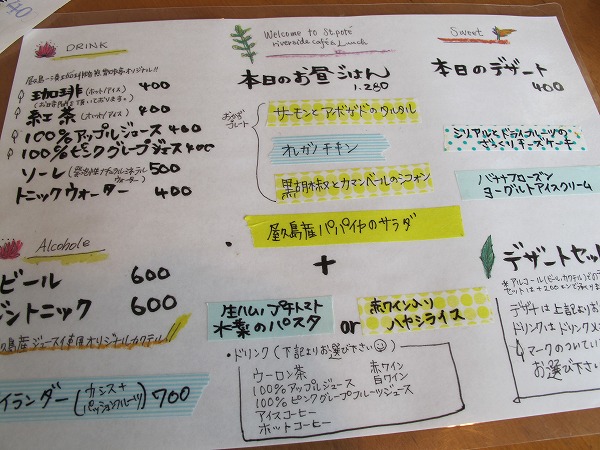 DRINK
珈琲(ホット/アイス) 400
(お口直し用を頂いております。)
紅茶(ホット/アイス) 400
100%アップルジュース 400
100%ピンクグレープジュース 400
ソーレ(発泡性ナチュラルミネラルウォーター) 500
トニックウォーター 400
Alcohole
ビール 600
ジントニック 600
島産ジュース使用オリジナルカクテル!!
イランダー(カシス+パッションフルーツ) 700
Welcome to St.poré
riverside café & Lunch
本日のお昼ごはん
1.280
おかずプレート
サーモンとアボカドのタルタル
オレガノチキン
黒胡椒とカマンベールのシフォン
屋久島産パパイヤのサラダ
+
生ハム、プチトマト
水菜のパスタ
or
赤ワイン入り
ハヤシライス
・ドリンク(下記よりお選び下さい)
ウーロン茶 赤ワイン
100%アップルジュース 白ワイン
100%ピンクグレープフルーツジュース
アイスコーヒー
ホットコーヒー
Sweet
本日のデザート
400
シリアルとドライフルーツの
ざっくりチーズケーキ
バナナフローズン
ヨーグルトアイスクリーム
デザートセット
*アルコール(ビール・カクテル)での
セットは+200
デザートは上記より
ドリンクはドリンクメ
マークのついてい
お選び下さい